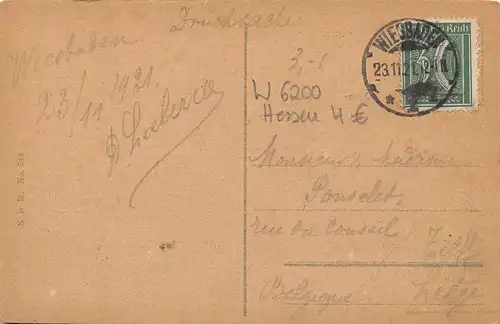 Drucksache
Wiesbaden
23/11 1921.
N. S. M. No. 514
WIESBADEN
23.11.21
Reich
3,-
W 6200
Hessen 4 €
Monsieur & Madame
Ponselet
rue du Conseil 7
Liège
Belgique